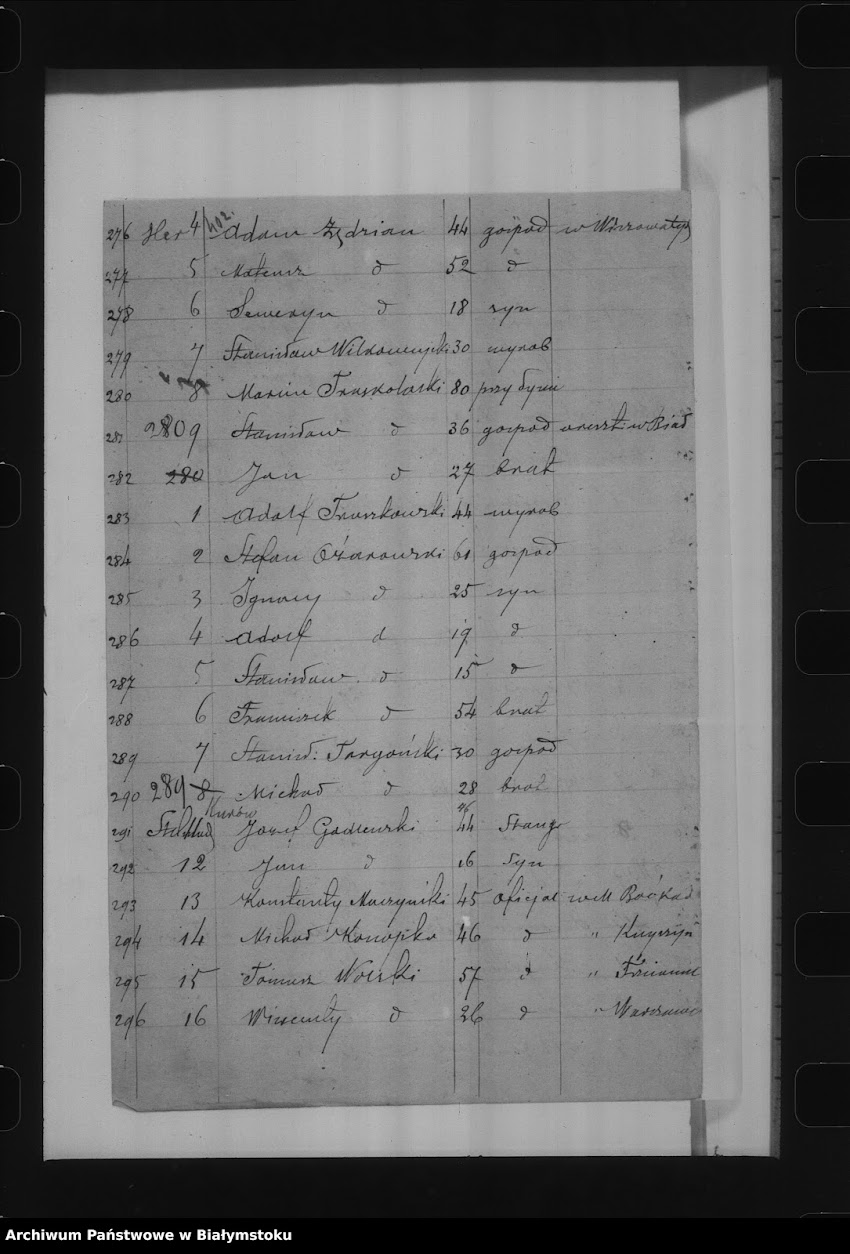 402.
276 Her 4 Adam Zędzian 44 gospod
277 5 Mateusz d 52 d
278 6 Seweryn d 18 syn
279 7 Stanisław 30 wyrob
280 8 Marcin Truskolaski 80 przy synu
281 280 9 Stanisław d 36 gospod areszt w Biał
282 280 Jan d 27 brat
283 1 Adolf Truszkowski 44 wyrob
284 2 Stefan Ożarowski 61 gospod
285 3 Ignacy d 25 syn
286 4 Adolf d 19 d
287 5 Stanisław d 15 d
288 6 Franciszek d 54 brat
289 7 Stanisł: Targoński 30 gospod
290 289 8 Michał d 28 brat
291 Józef Godlewski 44
292 12 Jan d 16 syn
293 13 Konstanty 45 oficjal w M Boćkach
294 14 Michał Konopko 46 d " Knyszyn
295 15 Tomasz Wolski 57 d "
296 16 Wincenty d 26 d " Warszawie
Archiwum Państwowe w Białymstoku